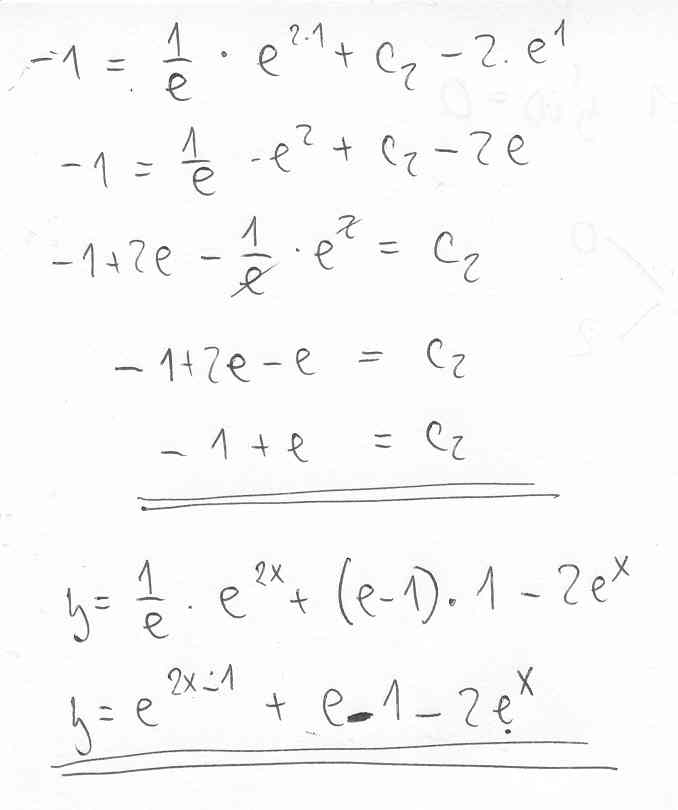 -1 = 1/e · e^(2·1) + c₂ - 2. e^1
-1 = 1/e · e^2 + c₂ - 2e
-1+2e - 1/e · e^2 = c₂
-1+2e-e = c₂
-1+e = c₂
y = 1/e · e^(2x) + (e-1) · 1 - 2e^x
y = e^(2x-1) + e-1-2e^x